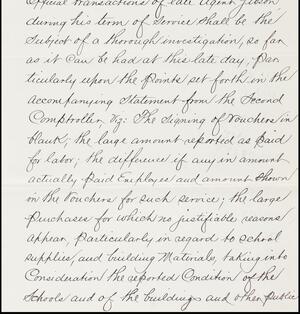 Official transactions of late Agent Gibson
during his term of Service shall be the
Subject of a thorough investigation, so far
as it can be had at this late day, Par
ticularly upon the Points set forth in the
accompanying Statement from the Second
Comptroller, Viz: The Signing of Vouchers in
blank; the large amount reported as Paid
for labor; the difference if any in amount
actually Paid Employes and amount Shown
on the Vouchers for such service; the large
Purchases for which no justifiable reasons
appear, Particularly in regard to school
supplies, and building Materials, taking into
Consideration the reported Condition of the
Schools and of the buildings and other Public